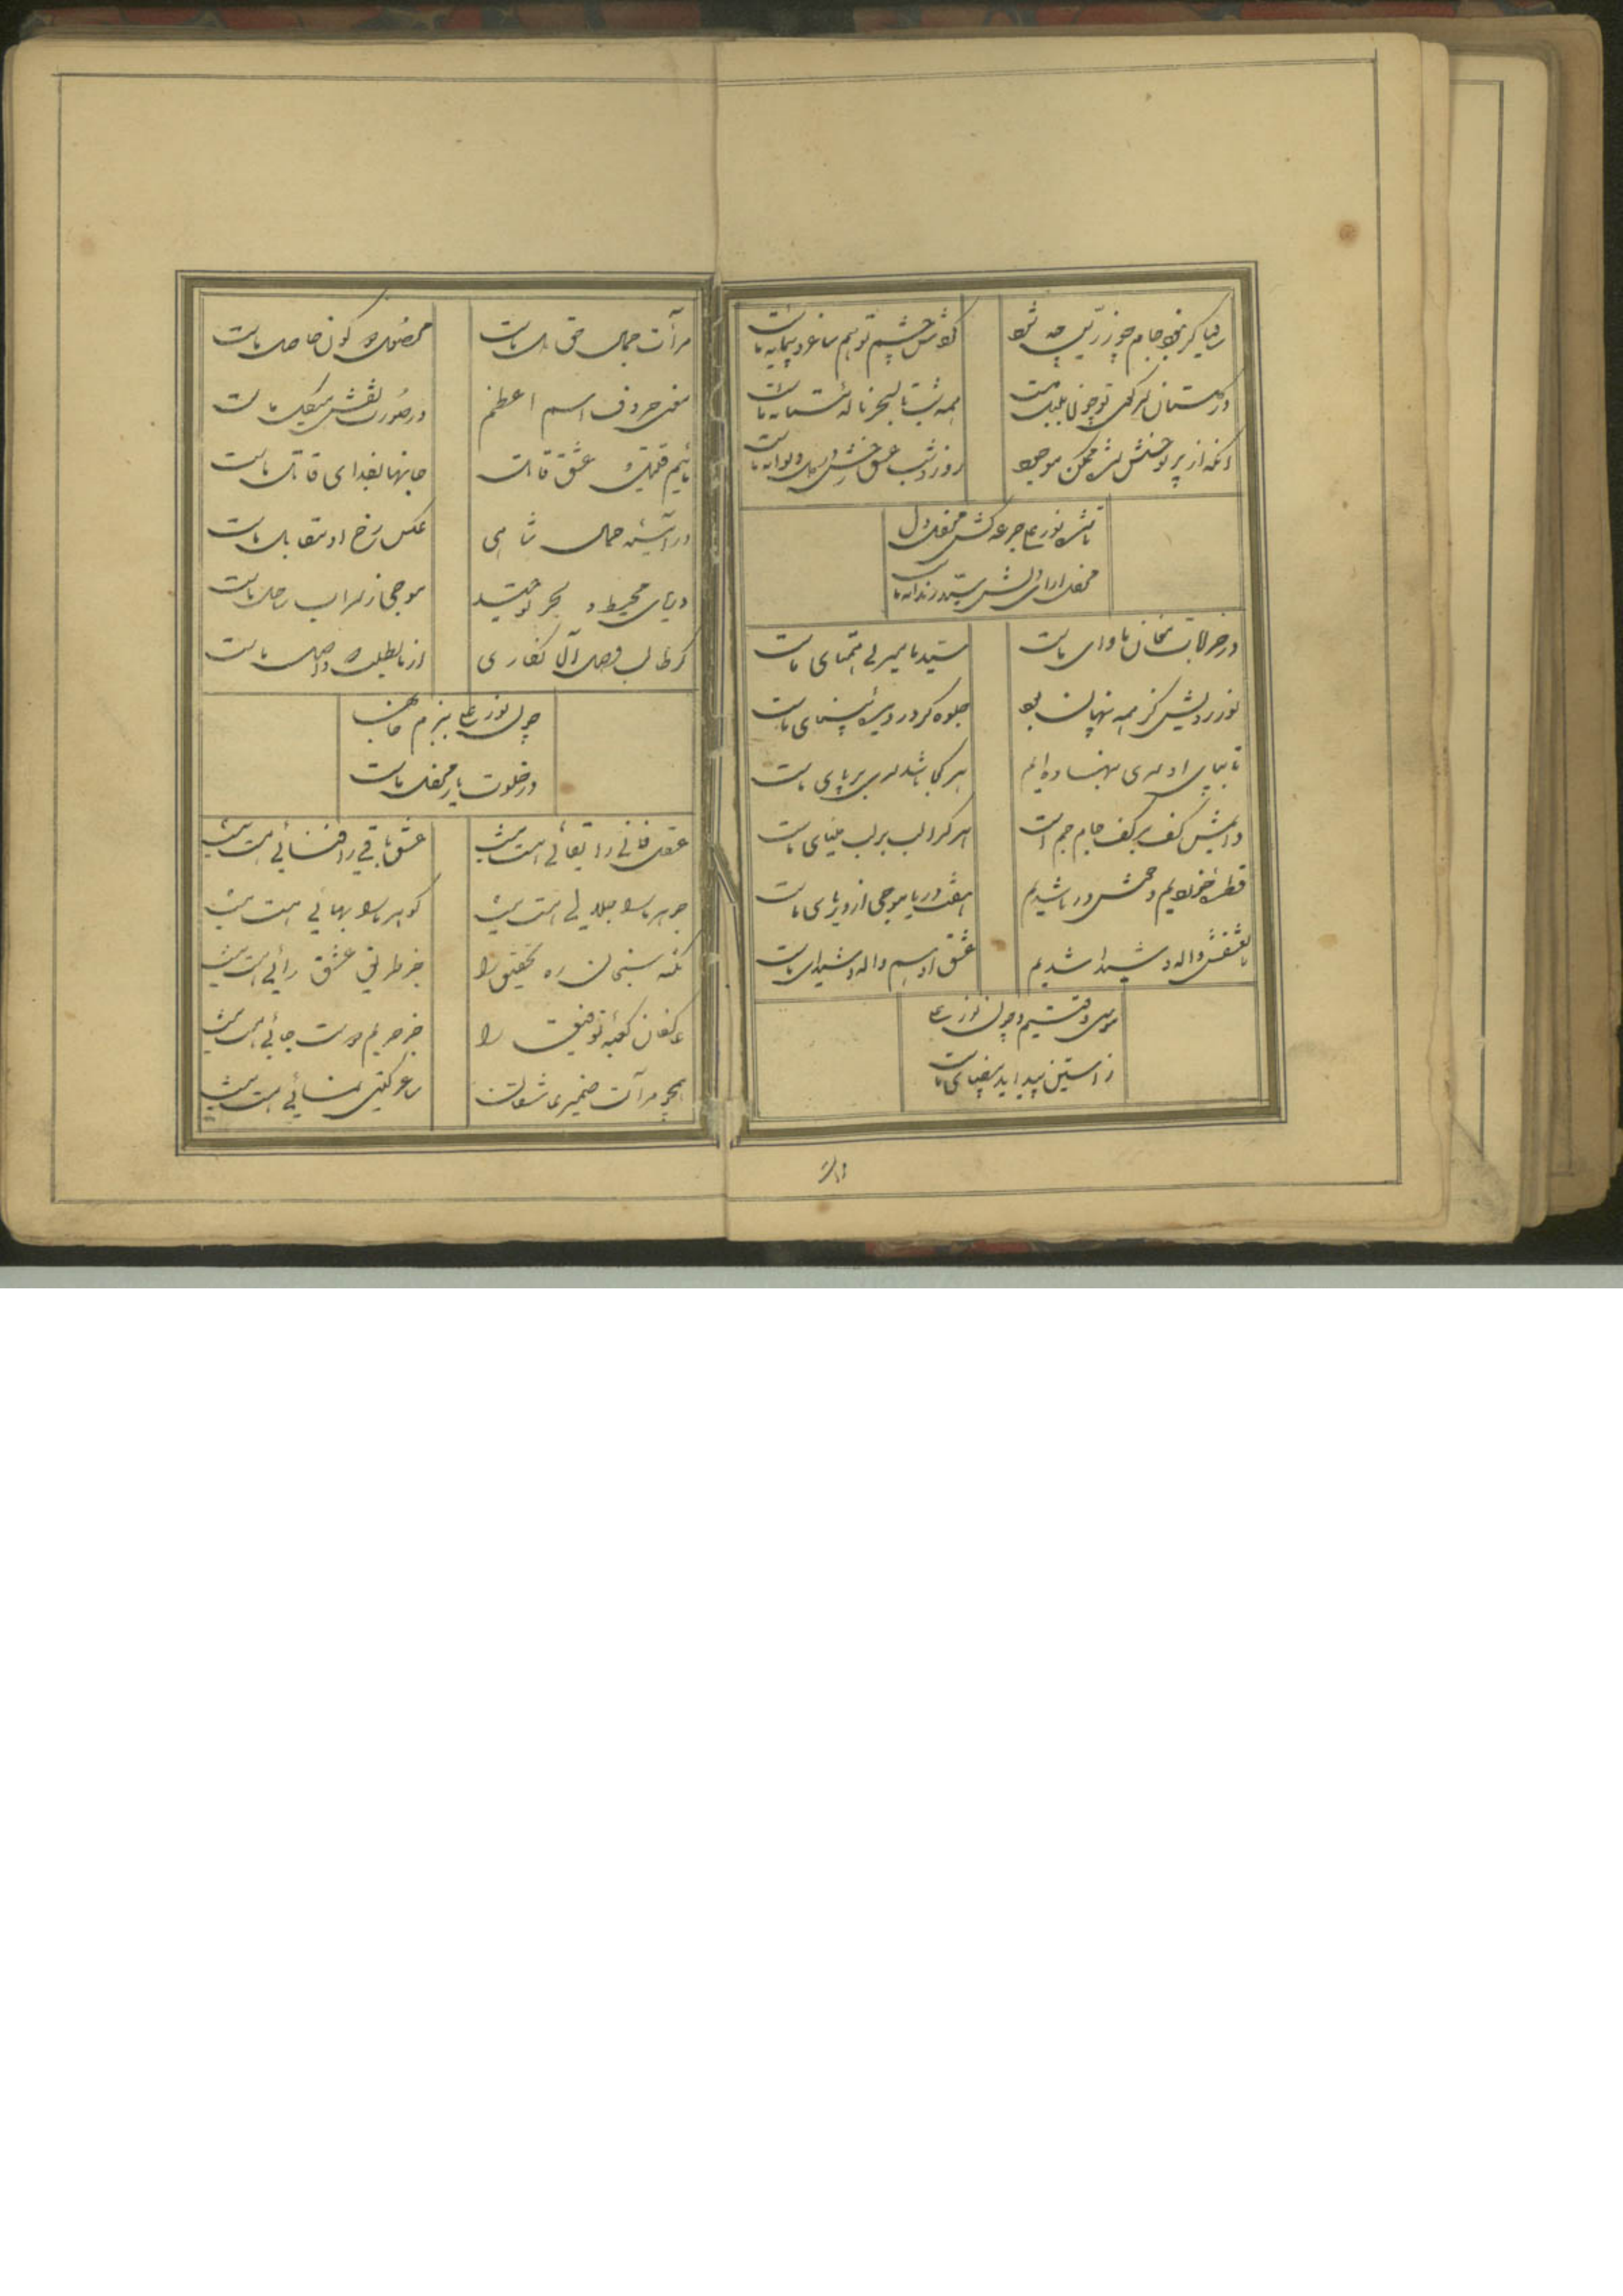 ساقیا گر نبود جام چو زرین چه شود
گردش چشم تو هم ساغر و پیمانه ماست
در گلستان گل تو چون بلبل مست
همه شب تا بسحر ناله مستانه ماست
آنکه از پرتو حسنش شده ممکن موجود
روز و شب عشق خوشش در دل دیوانه ماست
تا شد نورعلی جرعه کش محفل دل
محفل آرای دلش سید رندانه ماست
در خرابات مغان ماوای ماست
سید ما میر بی همتای ماست
نور رویش کز همه پنهان بود
جلوه گر در دیده بینای ماست
تا بپای او سری بنهاده‌ایم
هر کجا باشد سری بر پای ماست
دایمش کف بر کف جام جم است
هر که را لب بر لب مینای ماست
قطره خوردیم و خوش دریا شدیم
هفت دریا موجی از دریای ماست
ما بعشقش واله و شیدا شدیم
عشق او هم واله و شیدای ماست
موسی وقتیم و چون نورعلی
ز آستین پیدا ید بیضای ماست
مرآت جمال حق دل ماست
محصول دو کون حاصل ماست
معنی حروف اسم اعظم
در صورت نقش هیکل ماست
مائیم قتیل و عشق قاتل
جانها بفدای قاتل ماست
در آینه جمال شاهی
عکس رخ او مقابل ماست
دریای محیط و بحر توحید
موجی ز سراب ساحل ماست
گر طالب وصل آن نگاری
از ما بطلب که واصل ماست
چون نورعلی ببزم جانان
در خلوت یار محفل ماست
عقل فانی را بقائی هست نیست
عشق باقی را فنائی هست نیست
جوهر ما را جلائی هست نیست
گوهر ما را بهائی هست نیست
نکته سنجان ره تحقیق را
جز طریق عشق رائی هست نیست
عاکفان کعبه توفیق را
جز حریم دوست جائی هست نیست
همچو مرآت ضمیر عاشقان
ساغر گیتی نمائی هست نیست